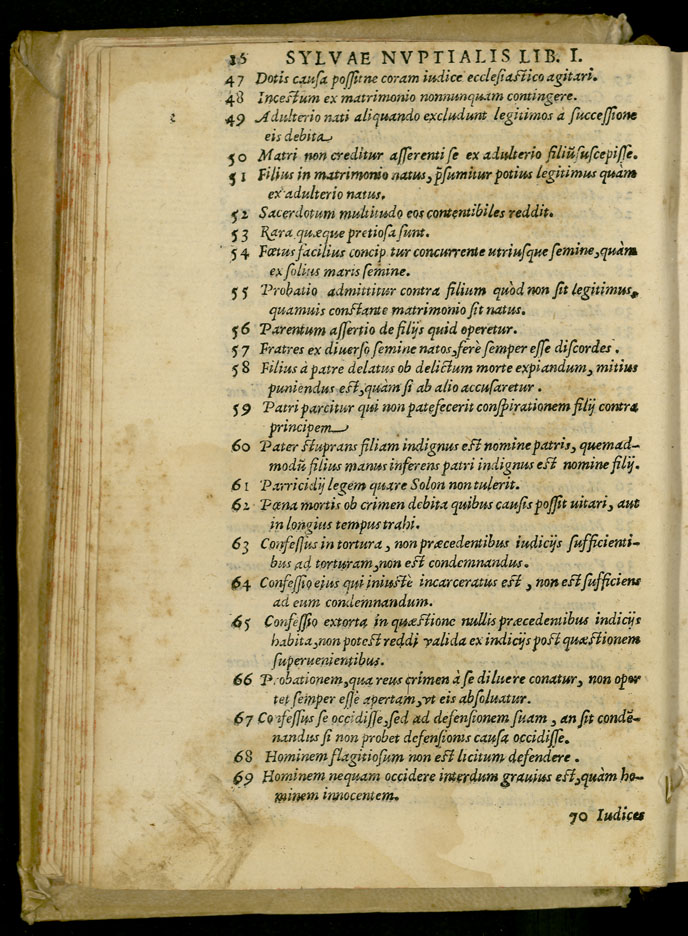 16 SYLVAE NVPTIALIS LIB. I.
47 Dotis causa possitne coram iudice ecclesiastico agitari.
48 Incestum ex matrimonio nonnunquam contingere.
49 Adulterio nati aliquando excludunt legitimos à successione
eis debita
50 Matri non creditur asserenti se ex adulterio filiũ suscepisse.
51 Filius in matrimonio natus, p̃sumitur potius legitimus quàm
ex adulterio natus.
52 Sacerdotum multitudo eos contentibiles reddit.
53 Rara quæque pretiosa sunt.
54 Fœtus facilius concip tur concurrente utriusque semine, quàm
ex solius maris semine.
55 Probatio admittitur contra filium quòd non sit legitimus,
quamuis constante matrimonio sit natus.
56 Parentum assertio de filijs quid operetur.
57 Fratres ex diuerso semine natos, ferè semper esse discordes.
58 Filius à patre delatus ob delictum morte expiandum, mitius
puniendus est, quàm si ab alio accusaretur.
59 Patri parcitur qui non patefecerit conspirationem filij contra
principem
60 Pater stuprans filiam indignus est nomine patris, quemad-
modũ filius manus inferens patri indignus est nomine filij.
61 Parricidij legem quare Solon non tulerit.
62 Pœna mortis ob crimen debita quibus causis possit uitari, aut
in longius tempus trahi.
63 Confessus in tortura, non præcedentibus iudicijs sufficienti-
bus ad torturam, non est condemnandus.
64 Confessio eius qui iniustè incarceratus est, non est sufficiens
ad eum condemnandum.
65 Confessio extorta in quæstione nullis præcedentibus indicijs
habita, non potest reddi valida ex indicijs post quæstionem
superuenientibus.
66 Probationem, qua reus crimen à se diluere conatur, non opor
tet semper esse apertam, vt eis absoluatur.
67 Confessus se occidisse, sed ad defensionem suam, an sit condẽ-
nandus si non probet defensionis causa occidisse.
68 Hominem flagitiosum non est licitum defendere.
69 Hominem nequam occidere interdum grauius est, quàm ho-
minem innocentem.
70 Iudices